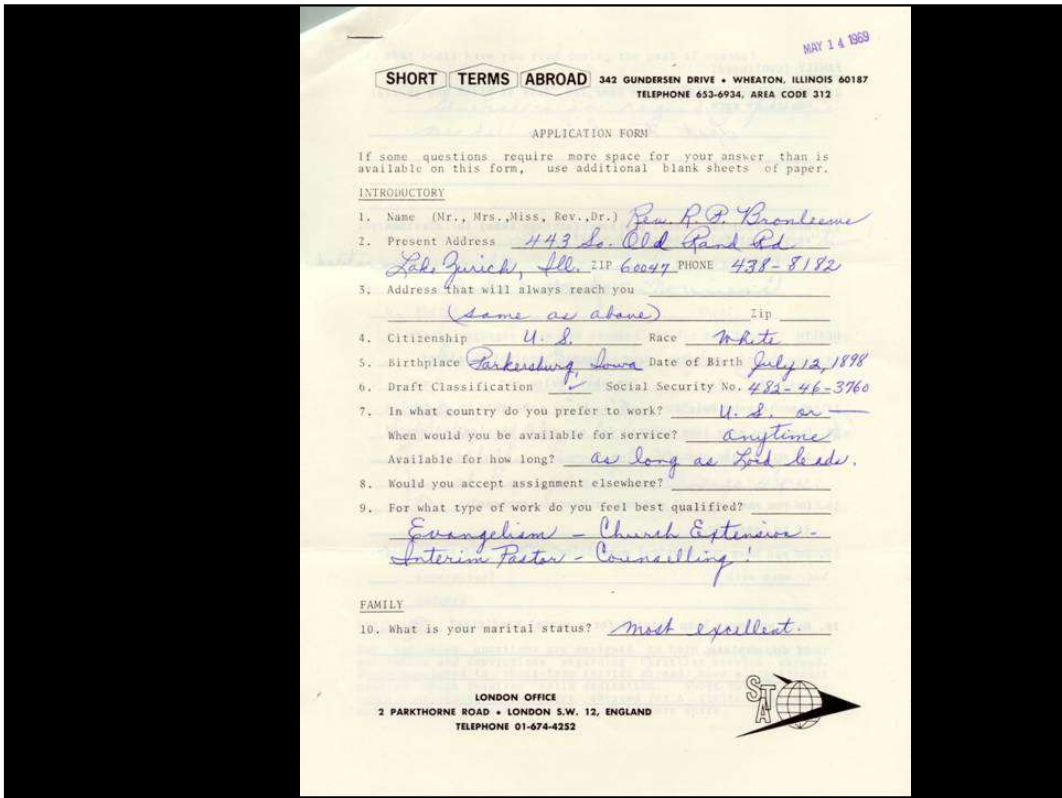 MAY 14 1969
SHORT TERMS ABROAD 342 GUNDERSEN DRIVE • WHEATON, ILLINOIS 60187
TELEPHONE 653-6934, AREA CODE 312
APPLICATION FORM
If some questions require more space for your answer than is
available on this form, use additional blank sheets of paper.
INTRODUCTORY
1. Name (Mr., Mrs.,Miss, Rev.,Dr.) Rev. R. P. Bronleewe
2. Present Address 443 So. Old Rand Rd
Lake Zurich, Ill. ZIP 60047 PHONE 438-8182
3. Address that will always reach you
(same as above) Zip
4. Citizenship U. S. Race White
5. Birthplace Parkersburg, Iowa Date of Birth July 12, 1898
6. Draft Classification ✓ Social Security No. 482-46-3760
7. In what country do you prefer to work? U. S. or —
When would you be available for service? anytime
Available for how long? as long as Lord leads.
8. Would you accept assignment elsewhere?
9. For what type of work do you feel best qualified?
Evangelism - Church Extension -
Interim Pastor - Counselling!
FAMILY
10. What is your marital status? most excellent.
STA
LONDON OFFICE
2 PARKTHORNE ROAD • LONDON S.W. 12, ENGLAND
TELEPHONE 01-674-4252